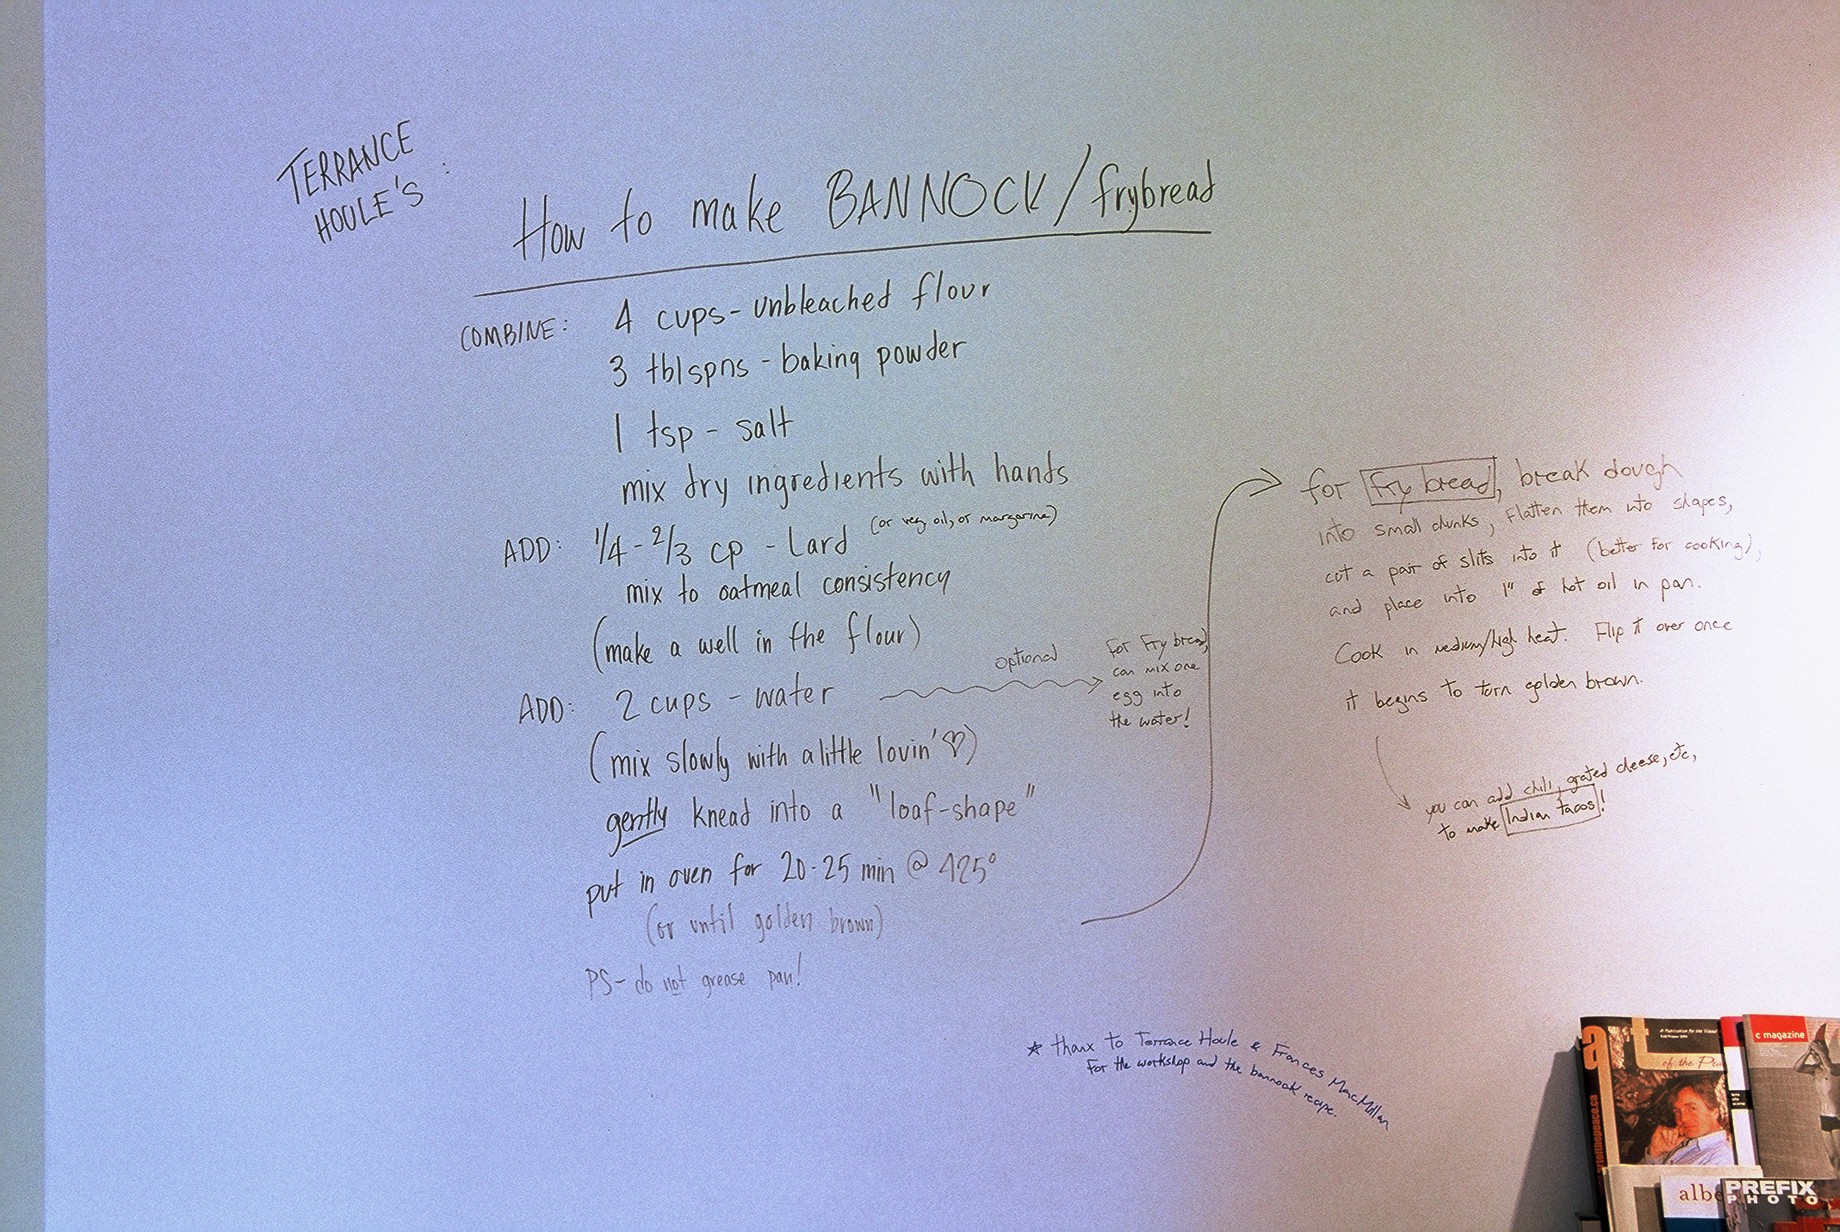 TERRANCE
HOULE'S :
How to make BANNOCK/frybread
COMBINE: 4 cups - unbleached flour
3 tblspns - baking powder
1 tsp - salt
mix dry ingredients with hands
ADD: 1/4 - 2/3 cp - Lard (or veg oil, or margarine)
mix to oatmeal consistency
(make a well in the flour)
ADD: 2 cups - water
optional
For Fry bread,
can mix one
egg into
the water!
(mix slowly with a little lovin' ♡)
gently knead into a "loaf-shape"
put in oven for 20-25 min @ 425°
(or until golden brown)
PS- do not grease pan!
for fry bread, break dough
into small chunks, Flatten them into shapes,
cut a pair of slits into it (better for cooking),
and place into 1" of hot oil in pan.
Cook in medium/high heat. Flip it over once
it begins to turn golden brown.
you can add chili, grated cheese, etc,
to make Indian tacos!
☆ thanx to Terrance Houle & Frances MacMillan
For the workshop and the bannock recipe.
c magazine
of the
PREFIX
PHOTO